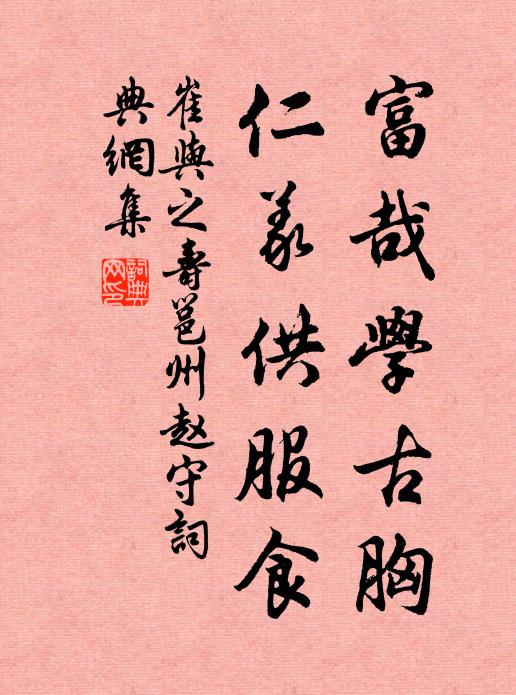 富哉學古胸
仁義供服食
崔與之壽邕州趙守詞
典網集
詞典網印